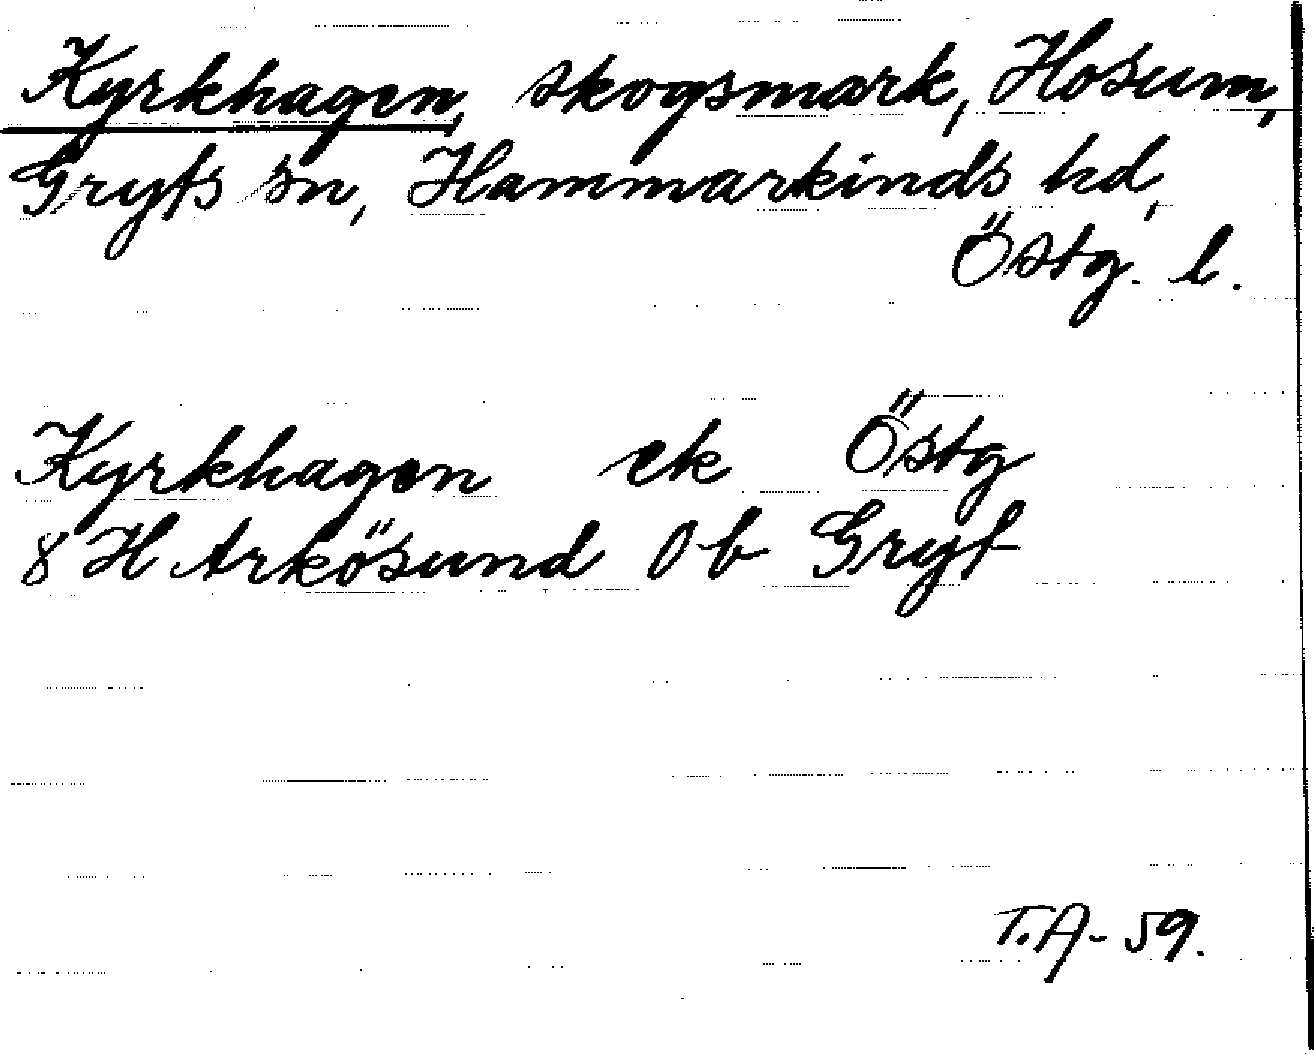 Kyrkhagen, skogsmark, Hosum,
Gryts sn, Hammarkinds hd,
Östg. l.
Kyrkhagen ek Östg
8 H Arkösund 0 b Gryt
T.A-59.